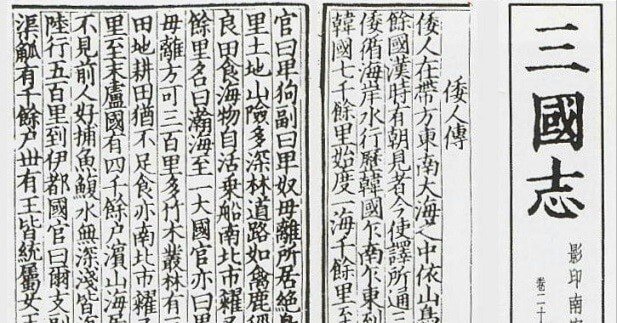 三國志
影印南
卷二十
倭人傳
倭人在帶方東南大海之中依山島
餘國漢時有朝見者今使譯所通三
倭循海岸水行歷韓國乍南乍東到
韓國七千餘里始度一海千餘里至
官曰卑狗副曰卑奴毋離所居絕島
里土地山險多深林道路如禽鹿徑
良田食海物自活乗船南北市糴
餘里名曰瀚海至一大國官亦曰卑
毋離方可三百里多竹木叢林有三
田地耕田猶不足食亦南北市糴
里至末盧國有四千餘戶濱山海居
不見前人好捕魚鰒水無深淺皆
陸行五百里到伊都國官曰爾支副
渠觚有千餘戶丗有王皆統屬女王